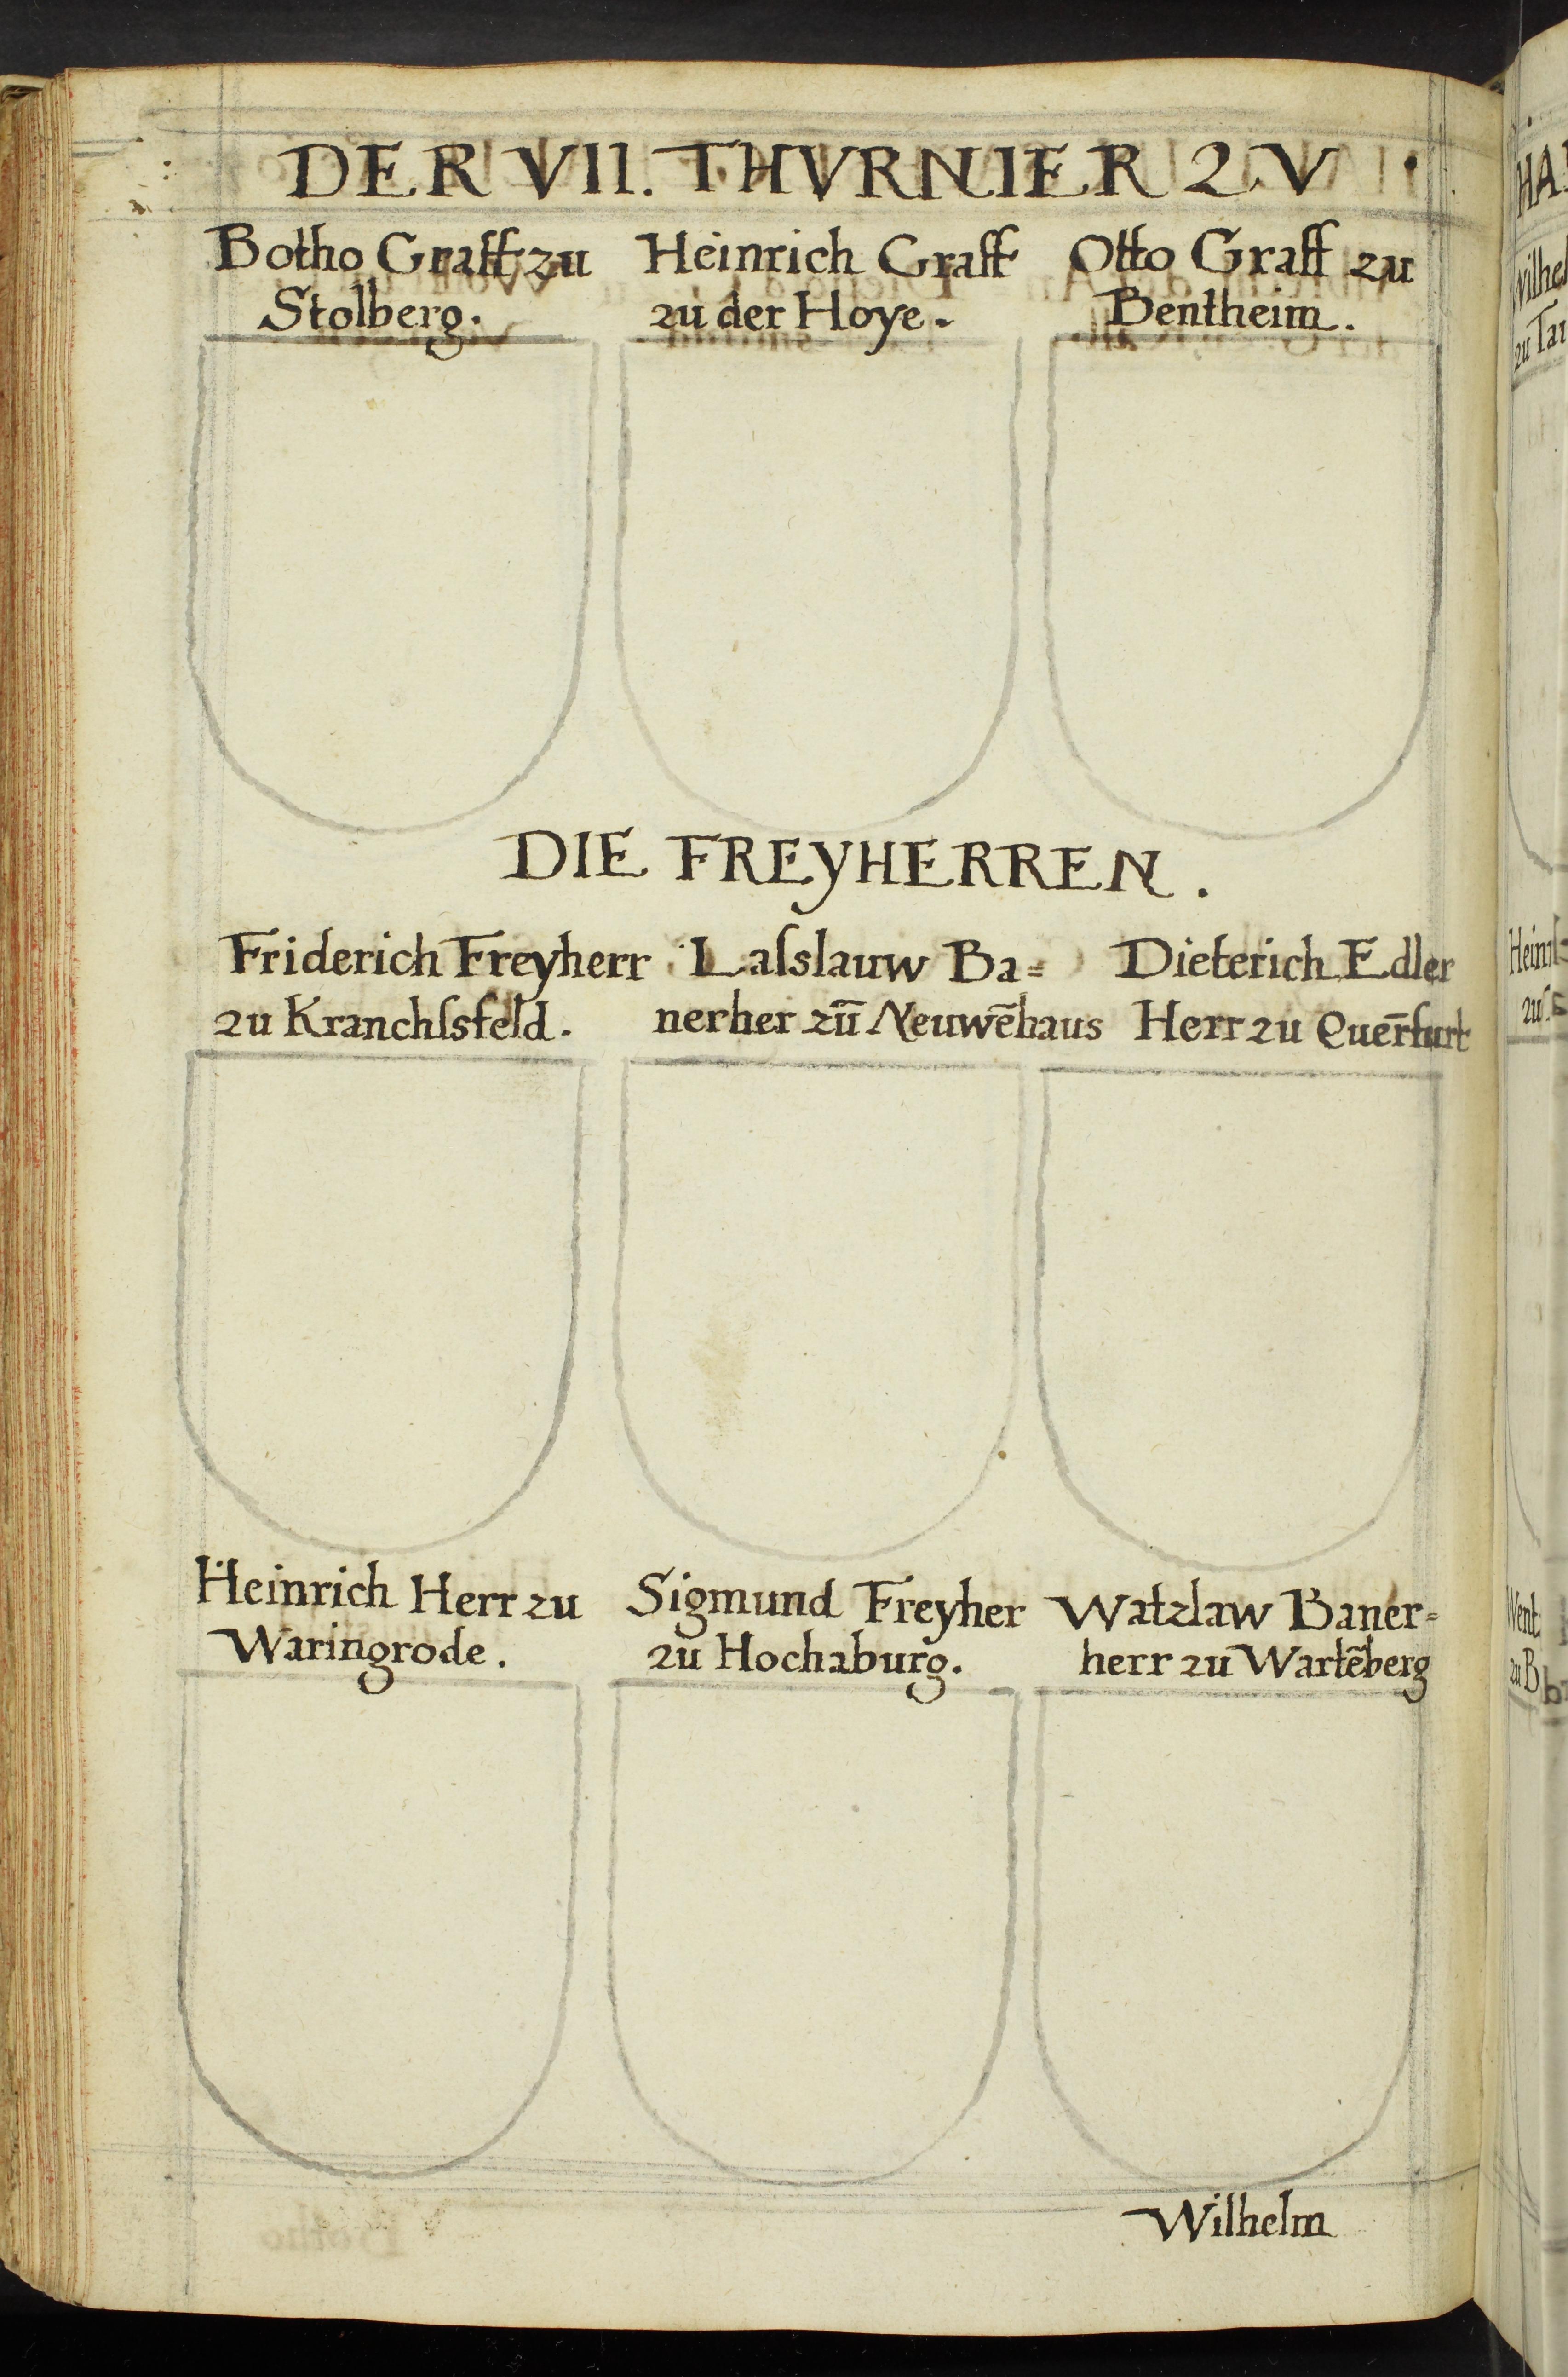 DER VII. THVRNIER ZV
Botho Graff zu
Stolberg.
Heinrich Graff
zu der Hoye.
Otto Graff zu
Bentheim.
DIE FREYHERREN.
Friderich Freyherr
zu Kranchſsfeld.
Laſslauw Ba=
nerher zū Neuwēhaus
Dieterich Edler
Herr zu Quer̄furt
Heinrich Herr zu
Waringrode.
Sigmund Freyher
zu Hochaburg.
Watzlaw Baner=
herr zu Wartēberg
Wilhelm